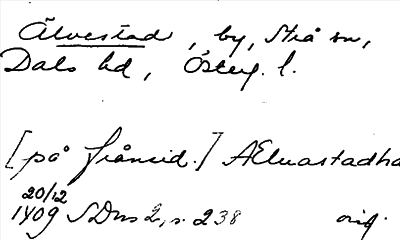 Älvestad, by, Strå sn,
Dals hd, Österg. l.
[på frånsid.] AElvastadha
20/12
1409 SDns 2, s. 238 orig.